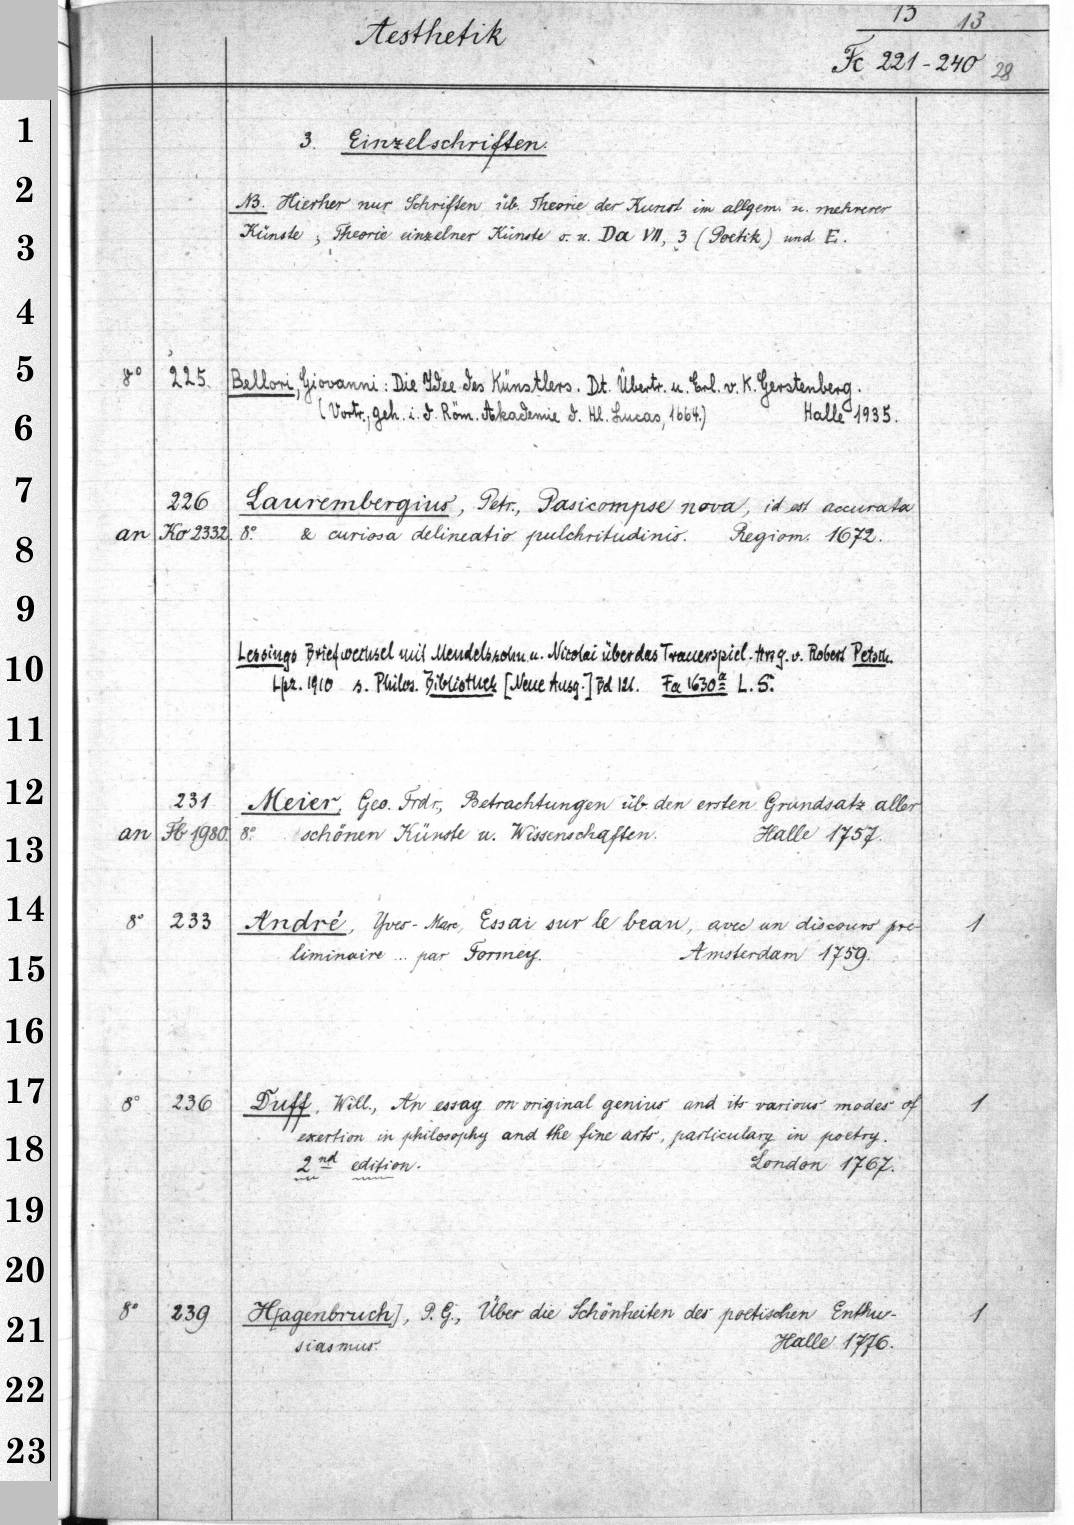 Aesthetik
13 13
Fc 221-240 28
1
3. Einzelschriften.
2 NB. Hierher nur Schriften üb. Theorie der Kunst im allgem. u. mehrerer
3 Künste; Theorie einzelner Künste s. u. Da VII, 3 (Poetik) und E.
4
5 8° 225. Bellori, Giovanni: Die Idee des Künstlers. Dt. Übertr. u. Erl. v. K. Gerstenberg.
6 (Vortr., geh. i. d. Röm. Akademie d. Hl. Lucas, 1664.) Halle 1935.
7 226 Laurembergius, Petr., Pasicompse nova, id est accurata
8 an Ko 2332. 8° & curiosa delineatio pulchritudinis. Regiom. 1672.
9
10 Lessings Briefwechsel mit Mendelssohn u. Nicolai über das Trauerspiel. Hrsg. v. Robert Petsch.
Lpz. 1910 s. Philos. Bibliothek [Neue Ausg.] Bd 121. Fa 1630a L. S.
11
12 231 Meier, Geo. Frdr., Betrachtungen üb. den ersten Grundsatz aller
13 an Fb 1980. 8° schönen Künste u. Wissenschaften. Halle 1757.
14 8° 233 André, Yves-Marc, Essai sur le beau, avec un discours pre- 1
15 liminaire ... par Formey. Amsterdam 1759.
16
17 8° 236 Duff, Will., An essay on original genius and its various modes of 1
exertion in philosophy and the fine arts, particulary in poetry.
18 2nd edition. London 1767.
19
20
21 8° 239 H[agenbruch], P. G., Über die Schönheiten des poetischen Enthu- 1
siasmus. Halle 1776.
22
23